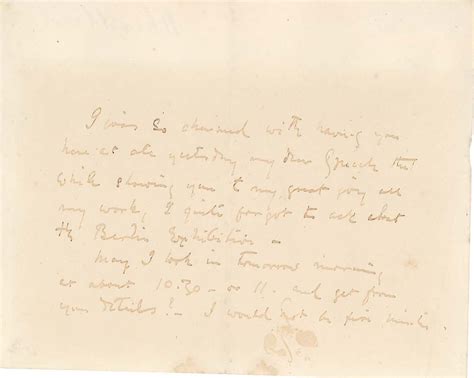 I was so charmed with having you
here at all yesterday my dear that
while showing you to my great joy all
my work, I quite forgot to ask about
the Berlin Exhibition –
May I look in tomorrow morning
at about 10.30 – or 11. and get from
you details? – I would not be five minutes.